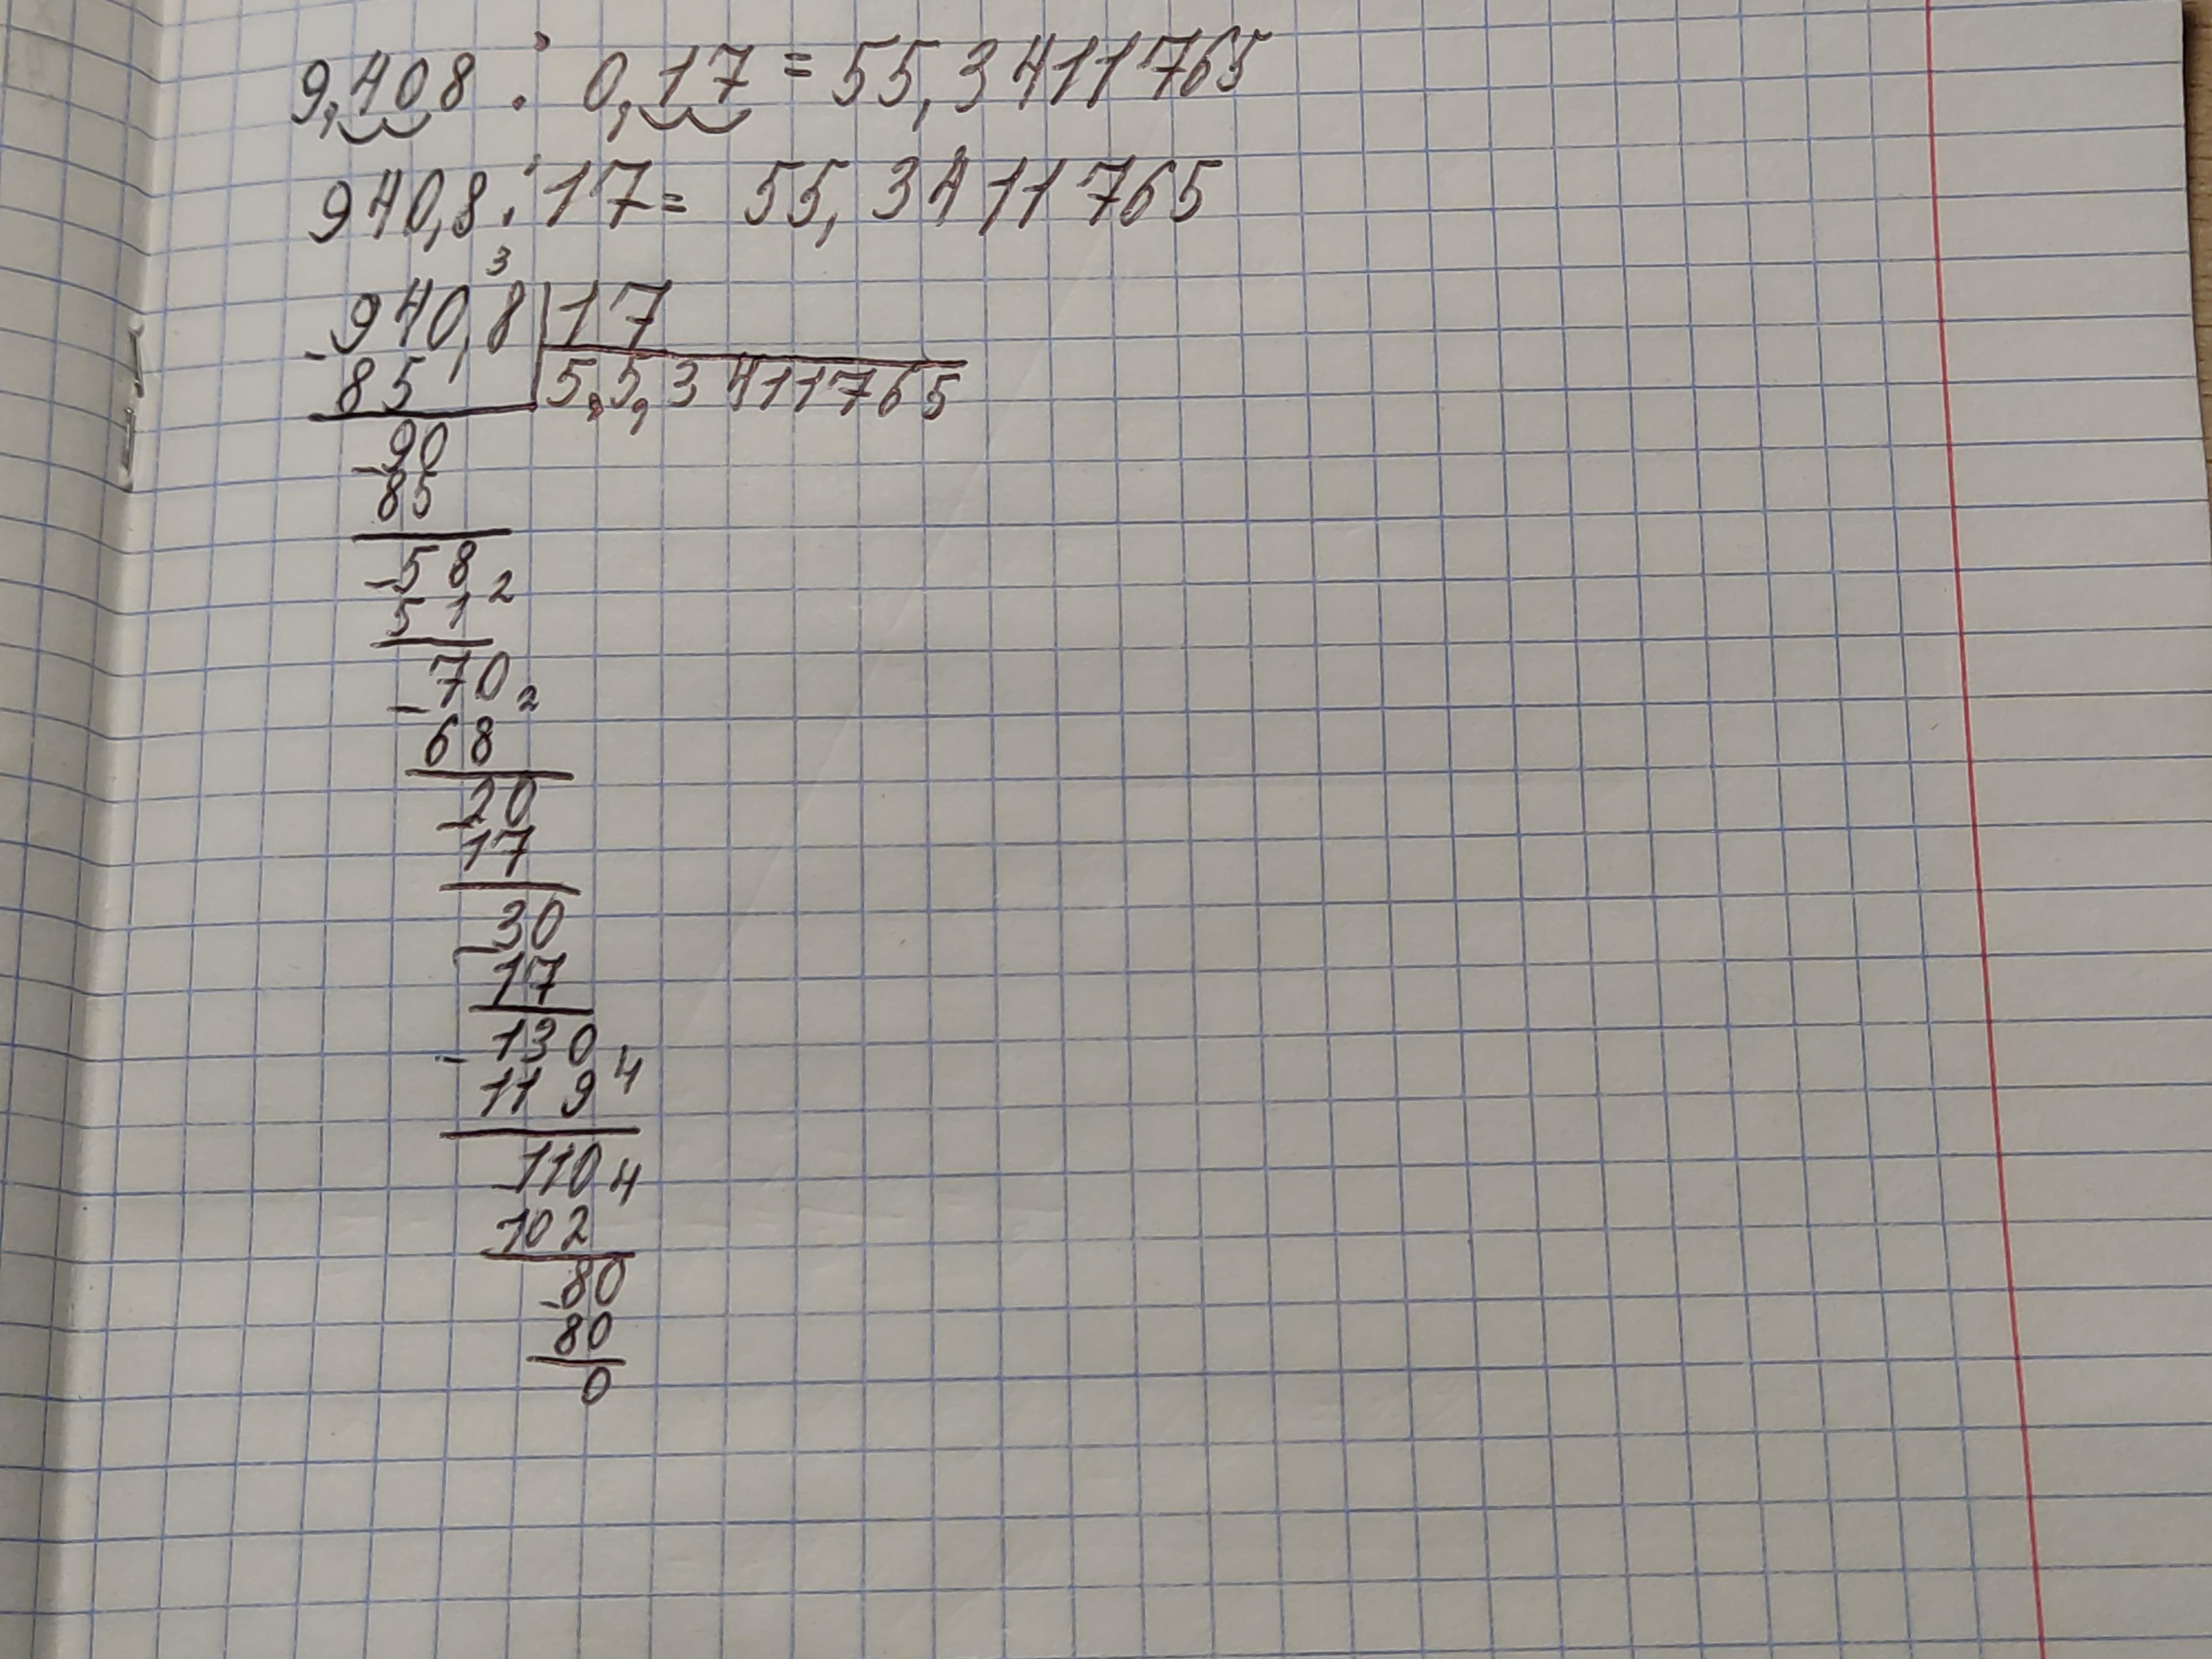 9,408 : 0,17 = 55,3411765
940,8 : 17 = 55,3411765
3
- 940,8 | 17
85 | 5,5,3411765
- 90
85
- 58 2
51
- 70 2
68
- 20
17
- 30
17
- 130 4
119
- 110 4
102
- 80
80
0